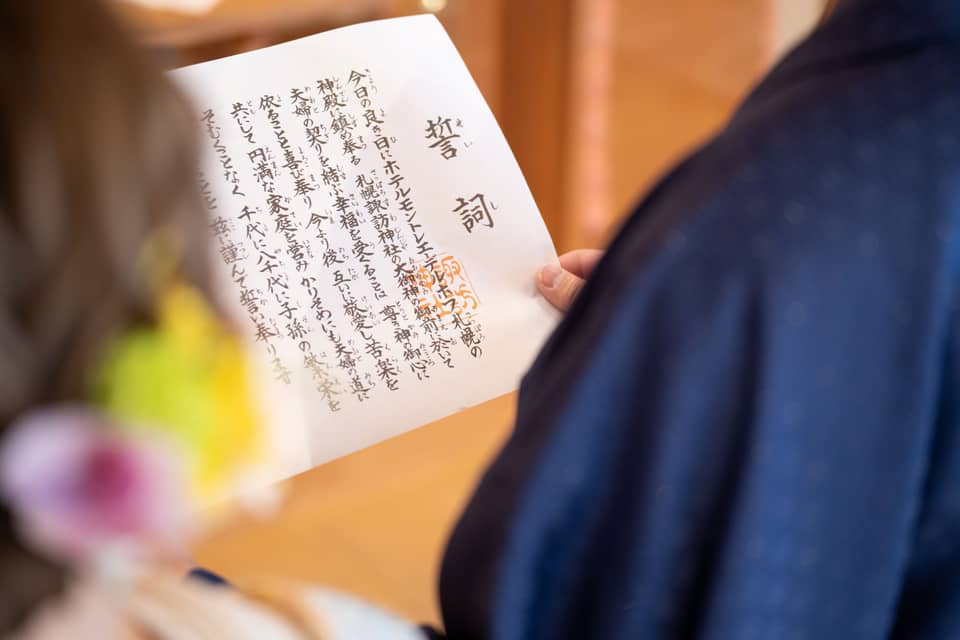 誓詞
今日の良き日にホテルモントレエーデルホフ札幌の
神殿に鎮め奉る 札幌諏訪神社の大御神の御前に於いて
夫婦の契りを結ぶ幸福を受くることは 尊き神の御心に
依ることと喜び奉り 今より後 互いに敬愛し苦楽を
共にして 円満な家庭を営み かりそめにも夫婦の道に
そむくことなく 千代に八千代に子孫の繁栄を
謹んで誓い奉ります